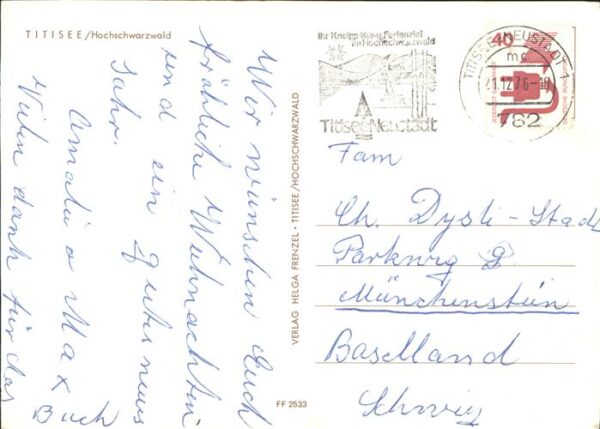 TITISEE/Hochschwarzwald
Wir wünschen Euch
fröhliche Weihnachten
und ein gutes neues
Jahr.
Amalie a Max
Vielen dank für das
Buch
VERLAG HELGA FRENZEL · TITISEE/HOCHSCHWARZWALD
FF 2533
Ihr Kneipp-Kur-u. Ferienziel
im Hochschwarzwald
Titisee-Neustadt
TITISEE-NEUSTADT 1
mc
21.12.76-18
782
40
Fam
Ch. Dysli-Stadt
Parkweg 8
Münchenstein
Baselland
Schweiz